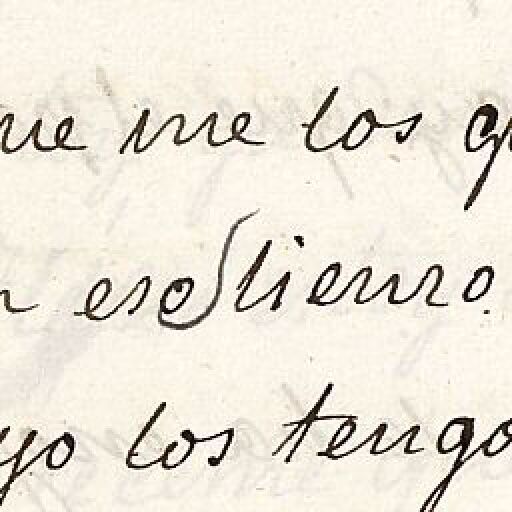 ue me los qu
n eso lienzo.
yo los tengo